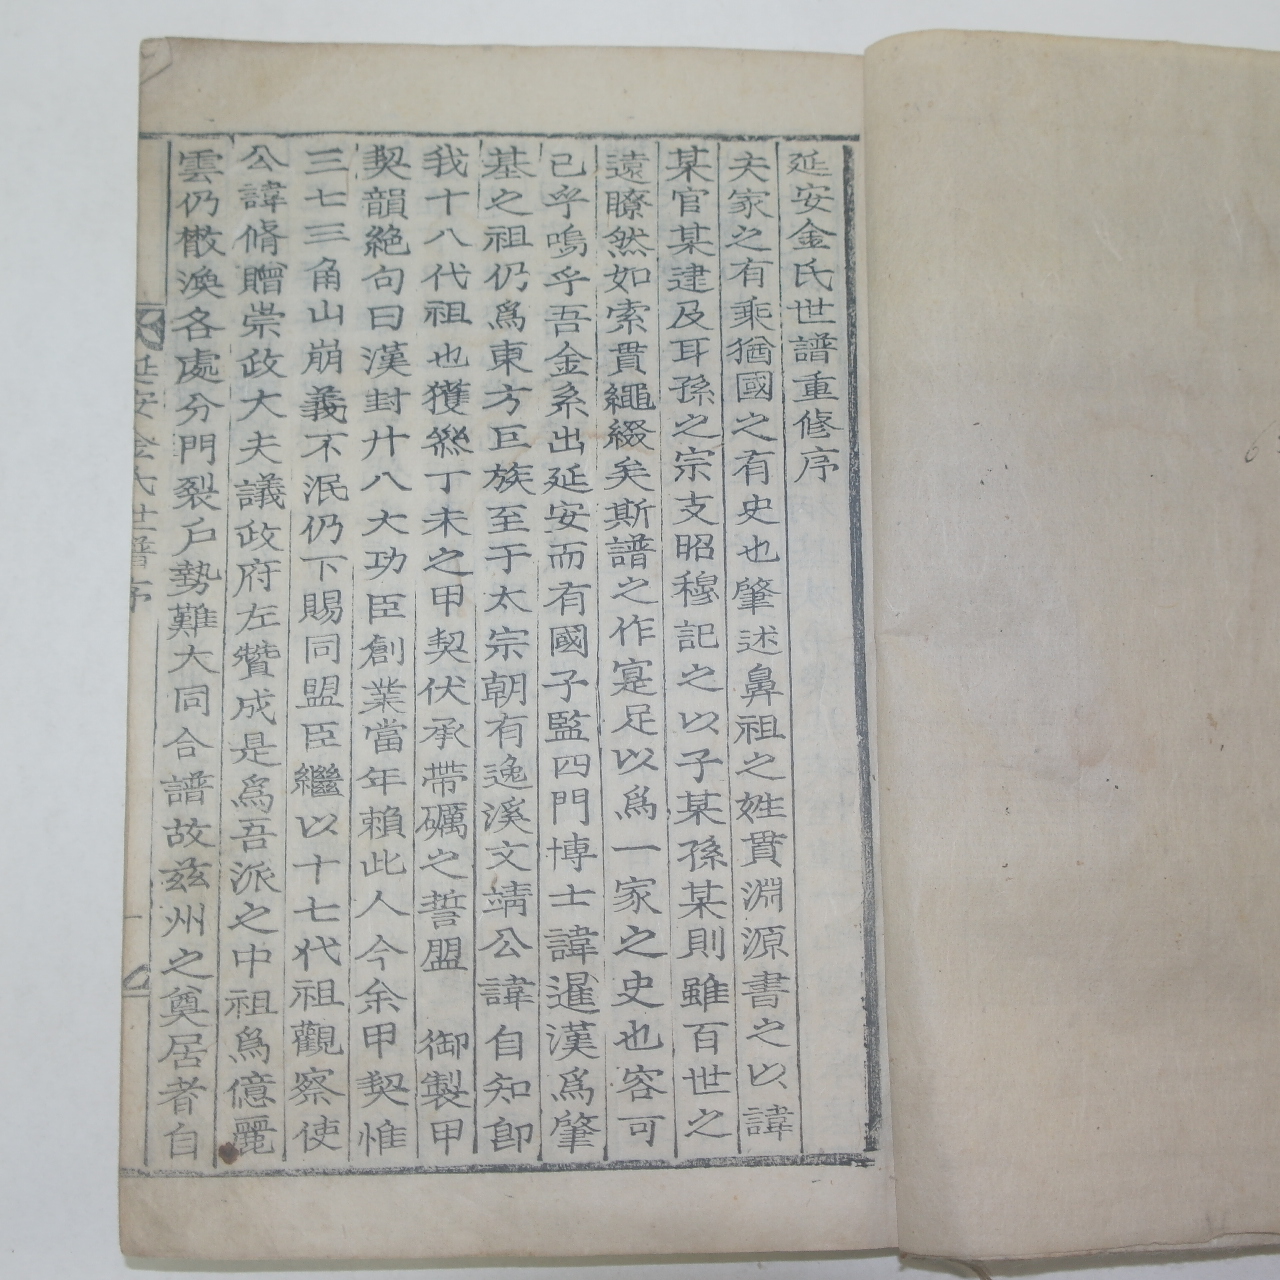 延安金氏世譜重修序
夫家之有乘猶國之有史也肇述鼻祖之姓貫淵源書之以諱
某官某逮及耳孫之宗支昭穆記之以子某孫某則雖百世之
遠瞭然如索貫繩綴矣斯譜之作寔足以爲一家之史也容可
已乎嗚乎吾金系出延安而有國子監四門博士諱暹漢爲肇
基之祖仍爲東方巨族至于太宗朝有逸溪文靖公諱自知卽
我十八代祖也獲叅丁未之甲契伏承帶礪之誓盟 御製甲
契韻絶句曰漢封廾八大功臣創業當年賴此人今余甲契惟
三七三角山崩義不泯仍下賜同盟臣繼以十七代祖觀察使
公諱脩贈崇政大夫議政府左贊成是爲吾派之中祖爲億麗
雲仍散渙各處分門裂戶勢難大同合譜故玆州之奠居者自
延安金氏世譜序
一